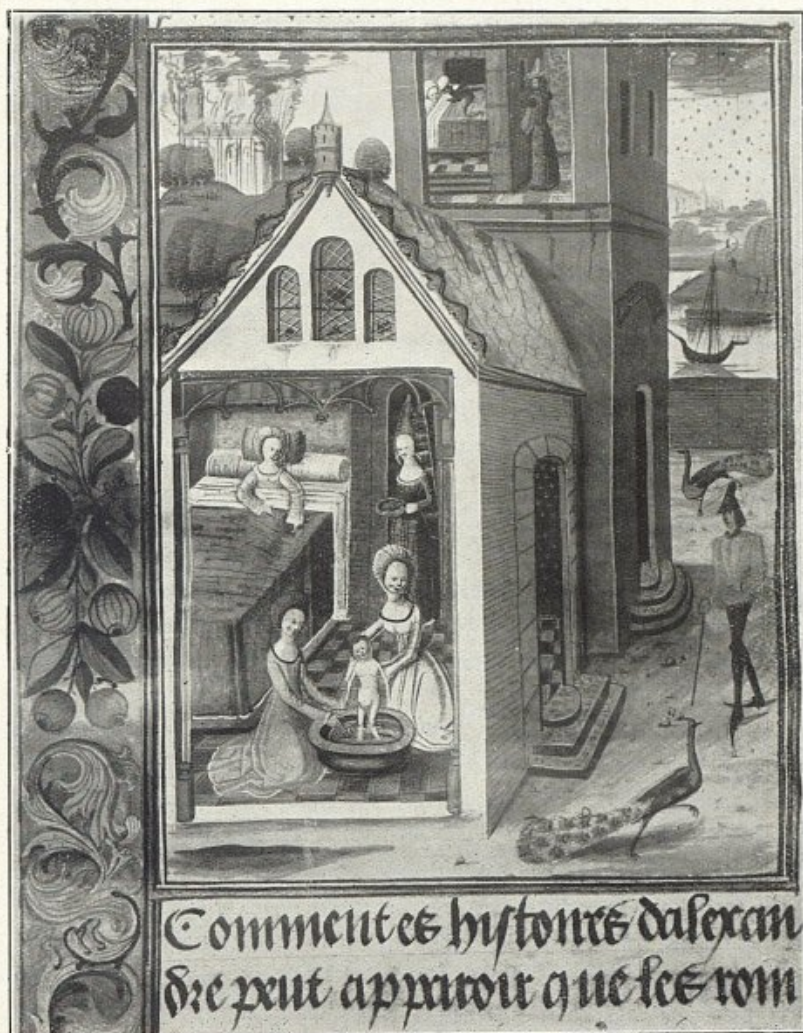 Comment es histoires dalexan
dre peut apparoir que les rom